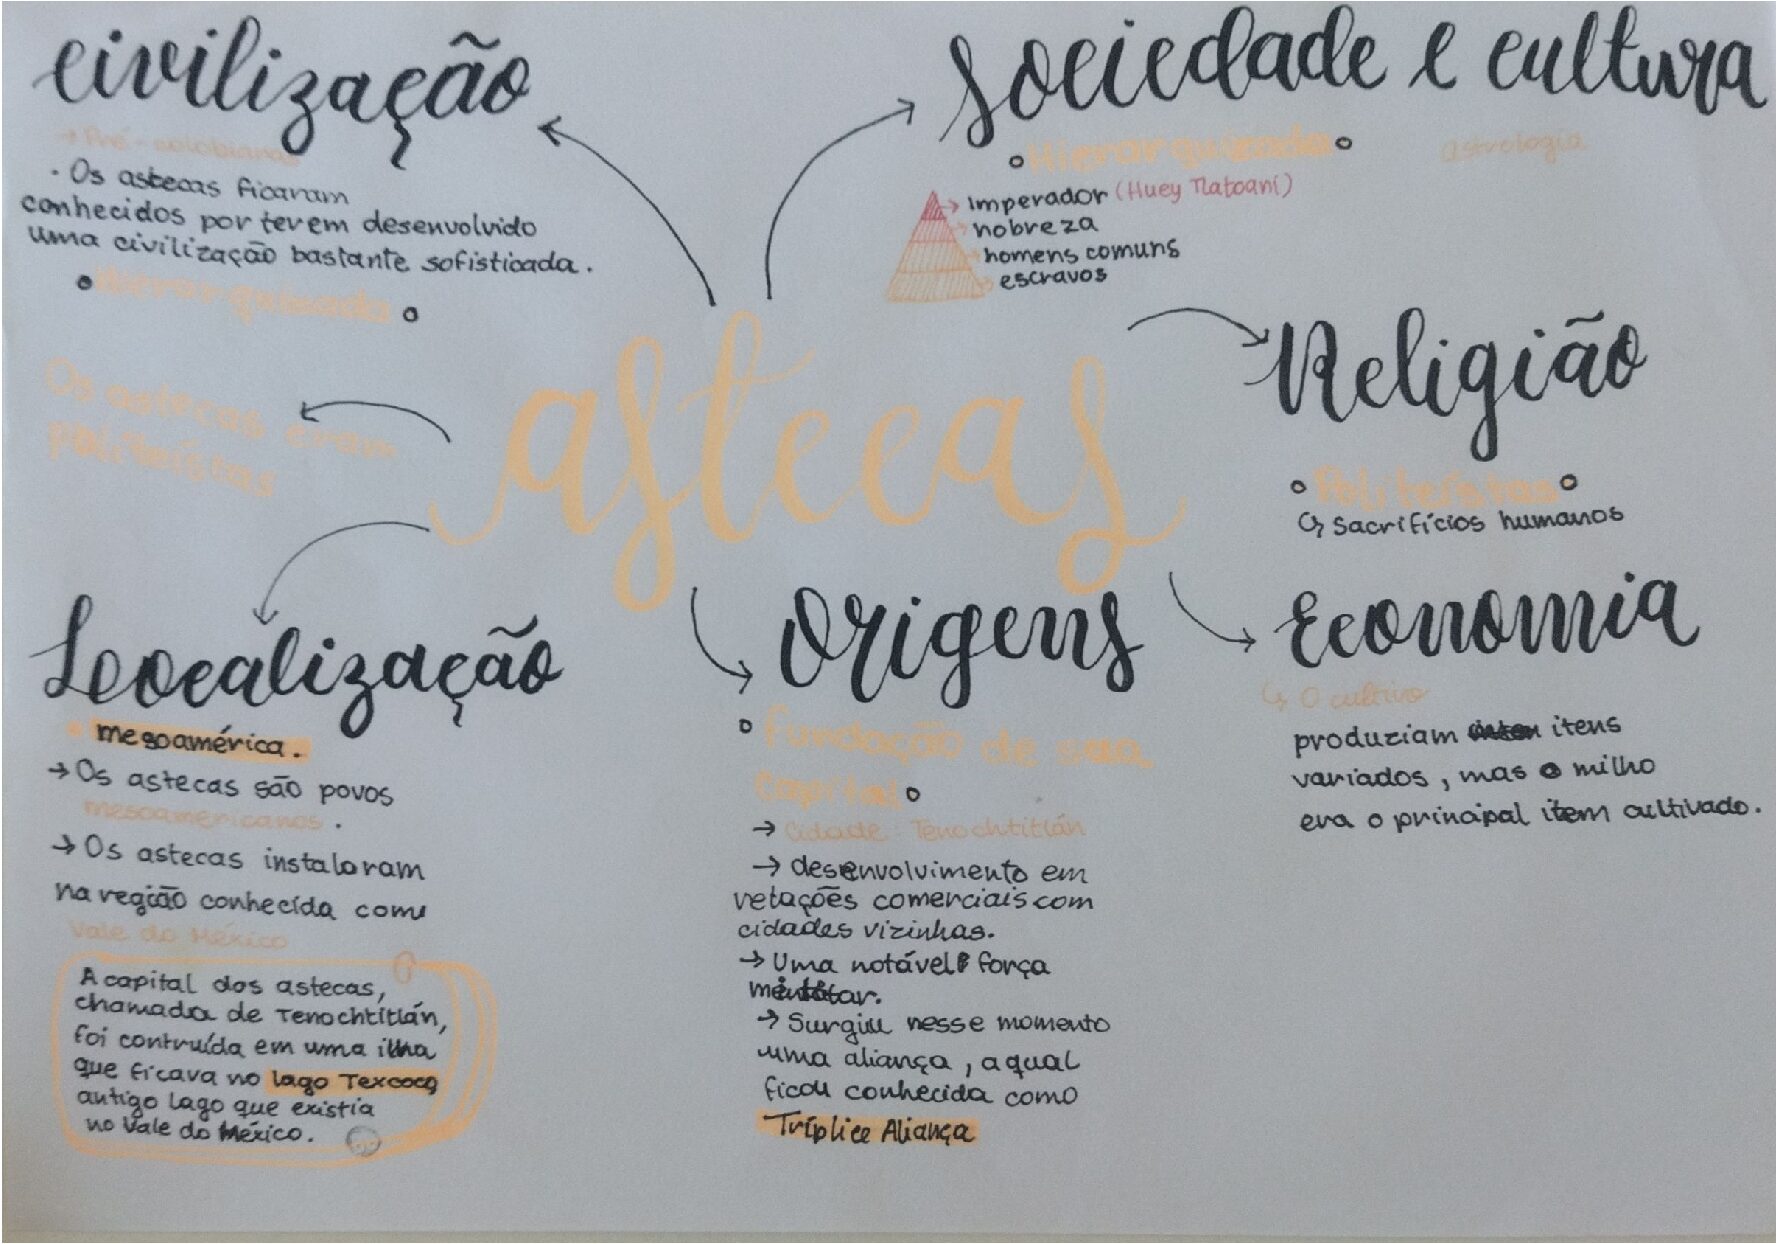 civilização
→ Pré-colobianas
· Os astecas ficaram
conhecidos por terem desenvolvido
uma civilização bastante sofisticada.
Hierarquizada
Sociedade e cultura
Hierarquizada
astrologia
→ imperador (Huey Tlatoani)
→ nobreza
→ homens comuns
→ escravos
Os astecas eram
politeístas
astecas
Religião
Politeístas
↳ Sacrifícios humanos
Localização
• mesoamérica.
→ Os astecas são povos
mesoamericanos.
→ Os astecas instalaram
na região conhecida como
Vale do México
A capital dos astecas,
chamada de Tenochtitlán,
foi contruída em uma ilha
que ficava no lago Texcoco,
antigo lago que existia
no Vale do México.
Origens
Fundação de sua
capital
→ Cidade: Tenochtitlán
→ desenvolvimento em
relações comerciais com
cidades vizinhas.
→ Uma notável força
→ Surgiu nesse momento
uma aliança, a qual
ficou conhecida como
Tríplice Aliança
Economia
↳ O cultivo
produziam itens
variados, mas o milho
era o principal item cultivado.